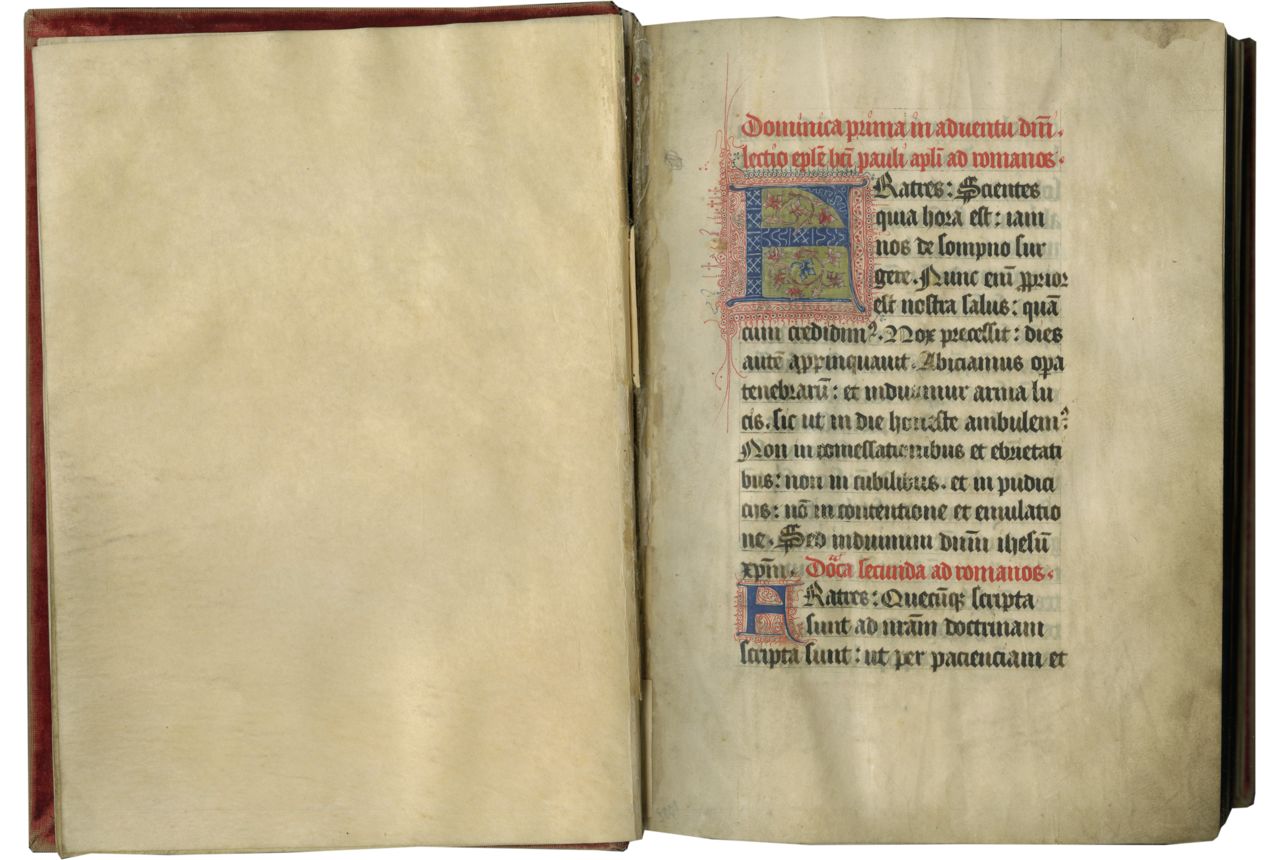 Dominica prima in aduentu dn̄i.
lectio ep̄le bt̄i pauli apl̄i ad romanos.
FRatres: Scientes
quia hora est: iam
nos de sompno sur
gere. Nunc eni̅ ꝓprior
est nostra salus: qua̅
cum credidim᾿. Nox precessit: dies
aute̅ appinquauit. Abiciamus opa
tenebraru̅: et induamur arma lu
cis. sic ut in die honeste ambulem᾿:
Non in comessationibus et ebrietati
bus: non in cubilibus. et in pudici
cijs: no̅ in contentione et emulatio
ne. Sed induimini dn̄m ihesu̅
xp̄m. Do̅ica secunda ad romanos.
FRatres: Quecu̅qꝫ scripta
sunt ad nr̄am doctrinam
scripta sunt: ut per pacienciam et